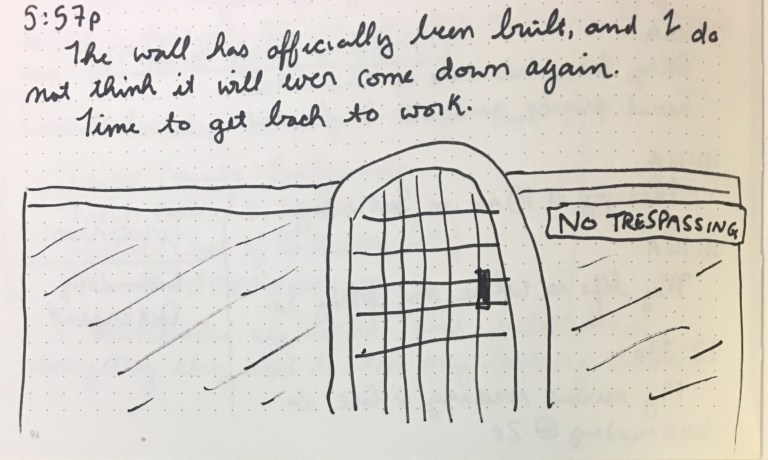 5:57p
The wall has officially been built, and I do
not think it will ever come down again.
Time to get back to work.
NO TRESPASSING
96